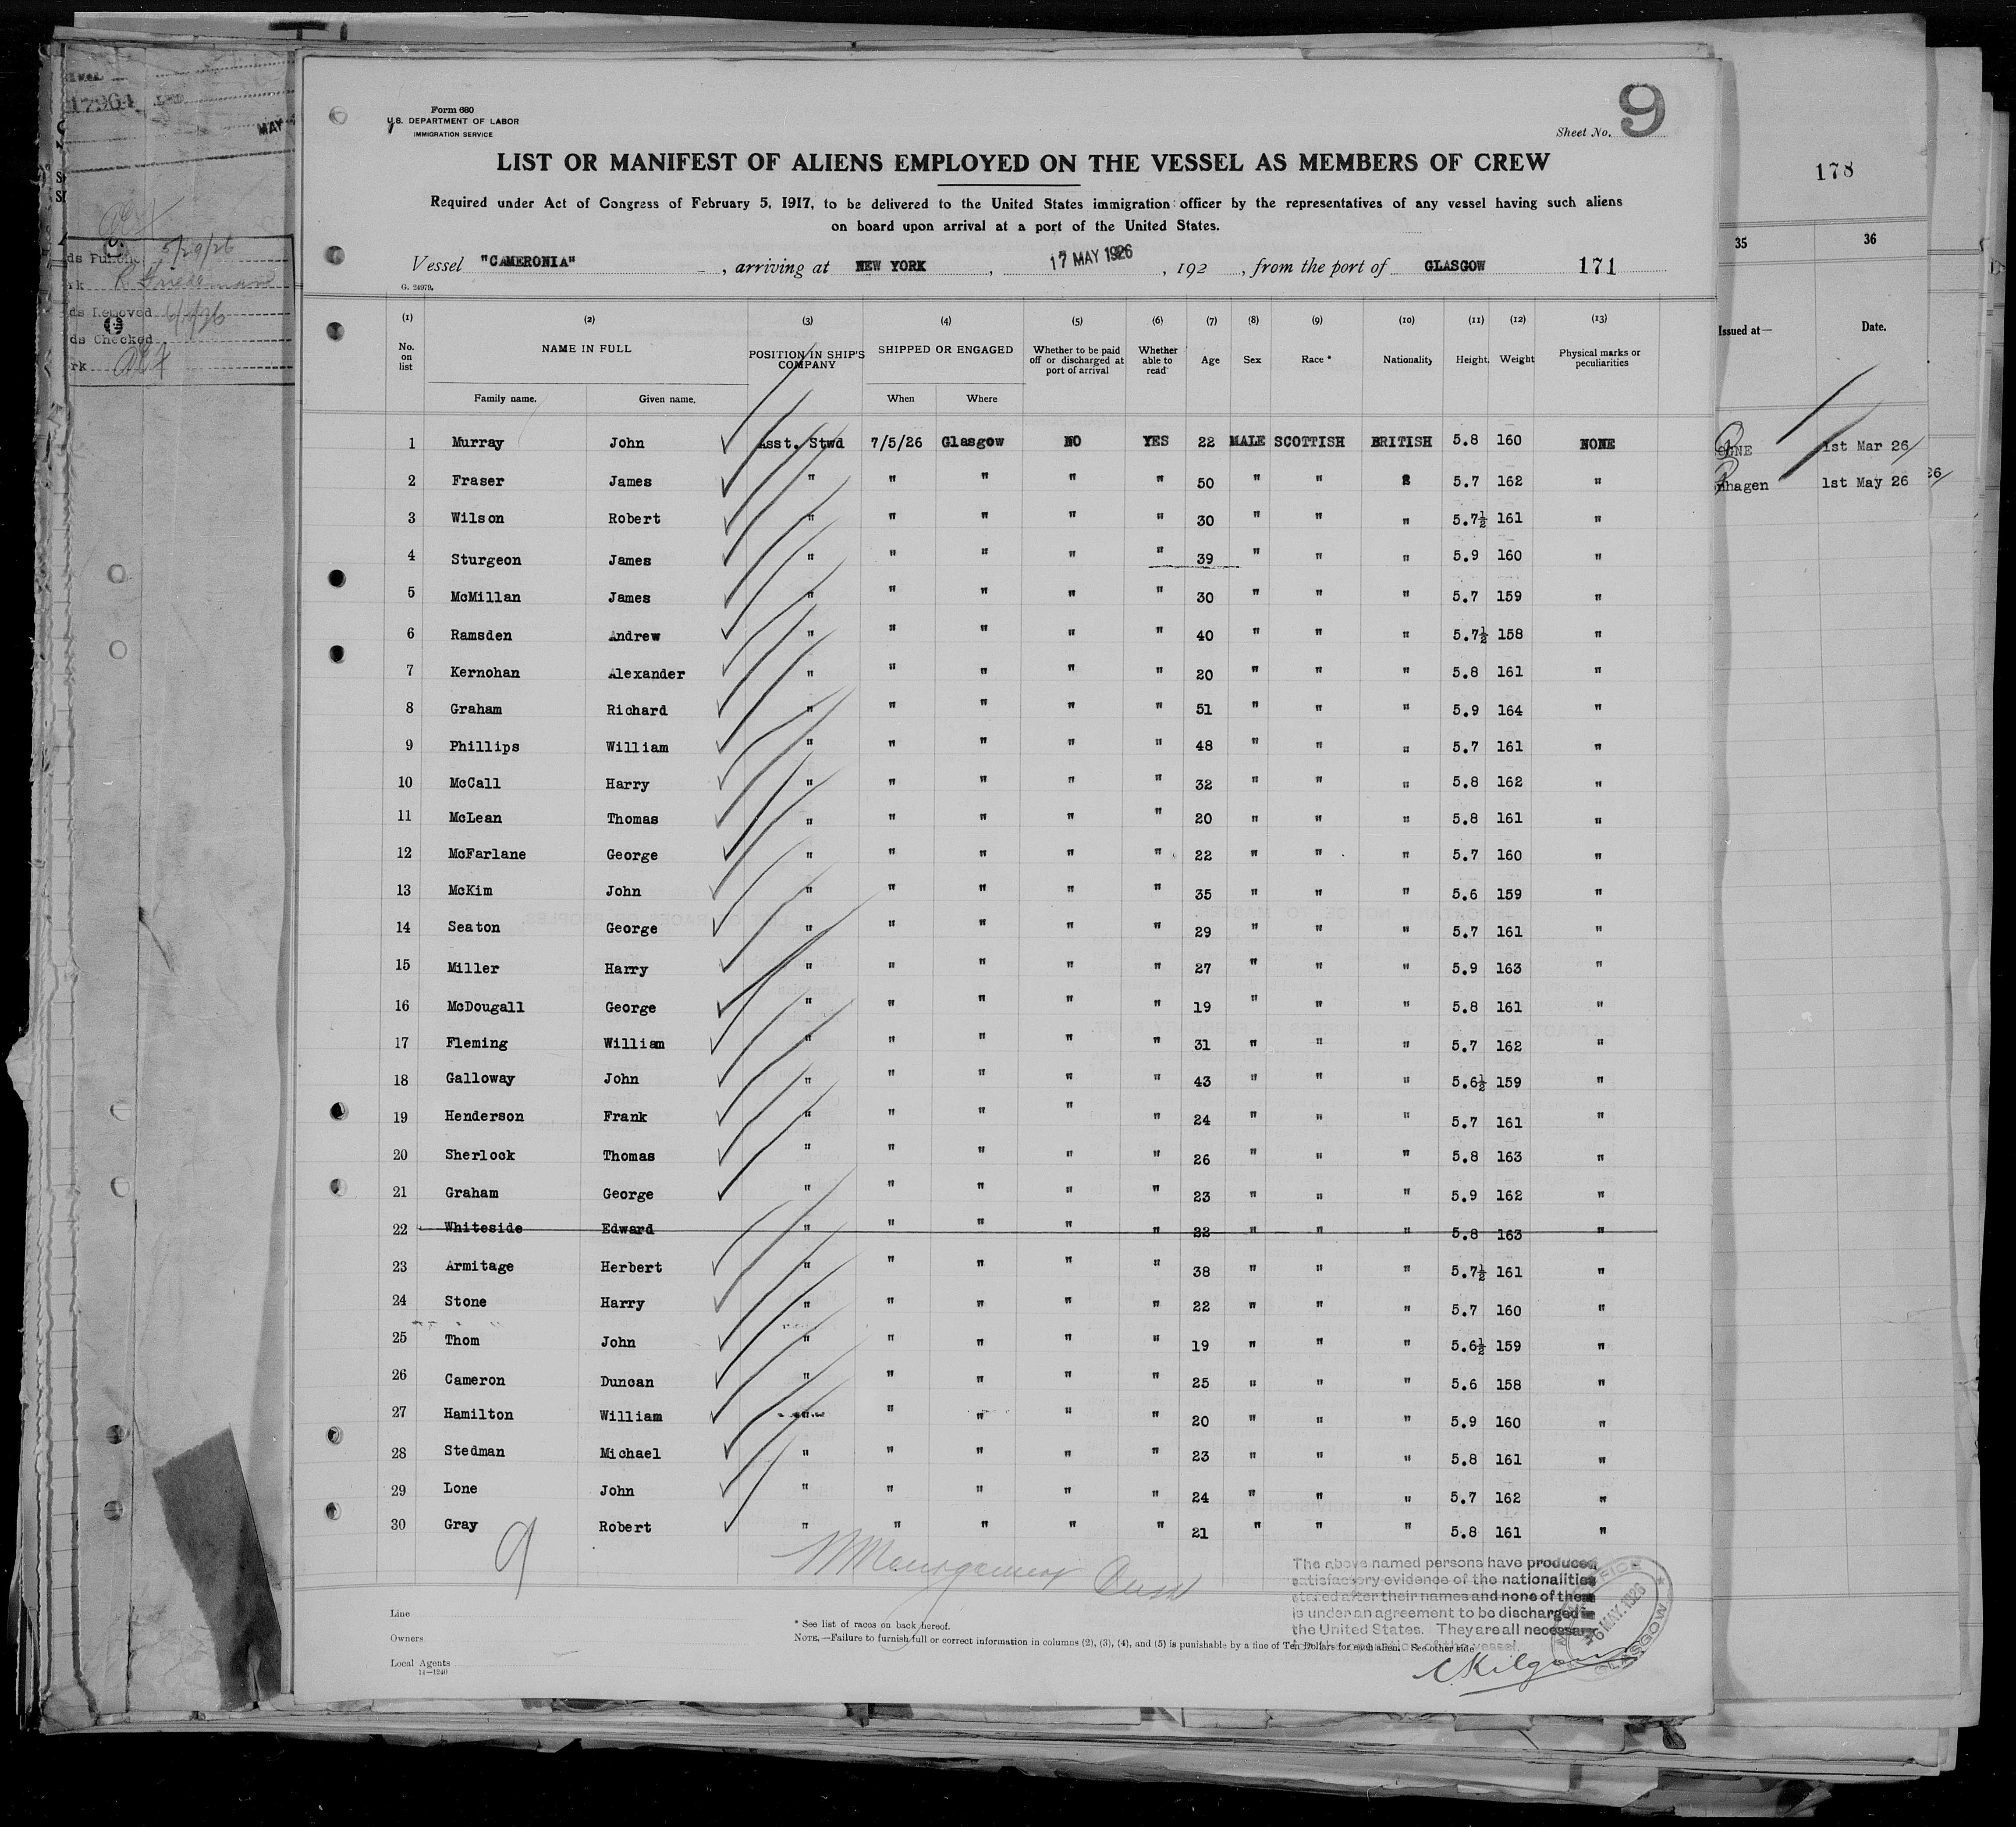 Form 680
U.S. DEPARTMENT OF LABOR
IMMIGRATION SERVICE
Sheet No. 9
LIST OR MANIFEST OF ALIENS EMPLOYED ON THE VESSEL AS MEMBERS OF CREW
Required under Act of Congress of February 5, 1917, to be delivered to the United States immigration officer by the representatives of any vessel having such aliens
on board upon arrival at a port of the United States.
Vessel "CAMERONIA", arriving at NEW YORK, 17 MAY 1926, 192 , from the port of GLASGOW 171
G. 24979.
(1) (2) (3) (4) (5) (6) (7) (8) (9) (10) (11) (12) (13)
No. on list NAME IN FULL POSITION IN SHIP'S COMPANY SHIPPED OR ENGAGED Whether to be paid off or discharged at port of arrival Whether able to read Age Sex Race * Nationality Height. Weight Physical marks or peculiarities
Family name. Given name. When Where
1 Murray John Asst. Stwd 7/5/26 Glasgow NO YES 22 MALE SCOTTISH BRITISH 5.8 160 NONE
2 Fraser James " " " " " 50 " " 2 5.7 162 "
3 Wilson Robert " " " " " 30 " " " 5.7½ 161 "
4 Sturgeon James " " " " " 39 " " " 5.9 160 "
5 McMillan James " " " " " 30 " " " 5.7 159 "
6 Ramsden Andrew " " " " " 40 " " " 5.7½ 158 "
7 Kernohan Alexander " " " " " 20 " " " 5.8 161 "
8 Graham Richard " " " " " 51 " " " 5.9 164 "
9 Phillips William " " " " " 48 " " " 5.7 161 "
10 McCall Harry " " " " " 32 " " " 5.8 162 "
11 McLean Thomas " " " " " 20 " " " 5.8 161 "
12 McFarlane George " " " " " 22 " " " 5.7 160 "
13 McKim John " " " " " 35 " " " 5.6 159 "
14 Seaton George " " " " " 29 " " " 5.7 161 "
15 Miller Harry " " " " " 27 " " " 5.9 163 "
16 McDougall George " " " " " 19 " " " 5.8 161 "
17 Fleming William " " " " " 31 " " " 5.7 162 "
18 Galloway John " " " " " 43 " " " 5.6½ 159 "
19 Henderson Frank " " " " " 24 " " " 5.7 161 "
20 Sherlock Thomas " " " " " 26 " " " 5.8 163 "
21 Graham George " " " " " 23 " " " 5.9 162 "
22 Whiteside Edward " " " " " 22 " " " 5.8 163 "
23 Armitage Herbert " " " " " 38 " " " 5.7½ 161 "
24 Stone Harry " " " " " 22 " " " 5.7 160 "
25 Thom John " " " " " 19 " " " 5.6½ 159 "
26 Cameron Duncan " " " " " 25 " " " 5.6 158 "
27 Hamilton William " " " " " 20 " " " 5.9 160 "
28 Stedman Michael " " " " " 23 " " " 5.8 161 "
29 Lone John " " " " " 24 " " " 5.7 162 "
30 Gray Robert " " " " " 21 " " " 5.8 161 "
The above named persons have produced
satisfactory evidence of the nationalities
stated after their names and none of them
is under an agreement to be discharged in
the United States. They are all necessary
of the vessel.
6 MAY. 1926
GLASGOW
Line
Owners
Local Agents
14—1240
* See list of races on back hereof.
NOTE.—Failure to furnish full or correct information in columns (2), (3), (4), and (5) is punishable by a fine of Ten Dollars for each alien. See other side
178
35 36
Issued at— Date.
1st Mar 26
nhagen 1st May 26
17964
MAY
5/29/26
ds Removed
ds Checked